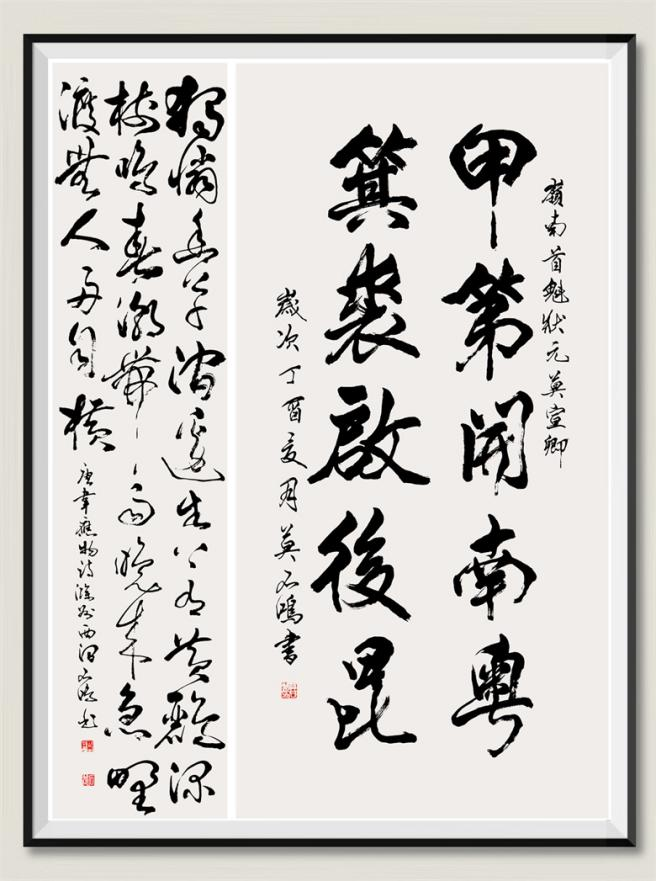 嶺南首魁狀元莫宣卿
甲第開南粵
箕裘啟後昆
歲次丁酉夏月莫石鴻書
獨憐幽草澗邊生上有黃鸝深
樹鳴春潮帶雨晚來急野
渡無人舟自橫
唐韋應物詩滁州西澗